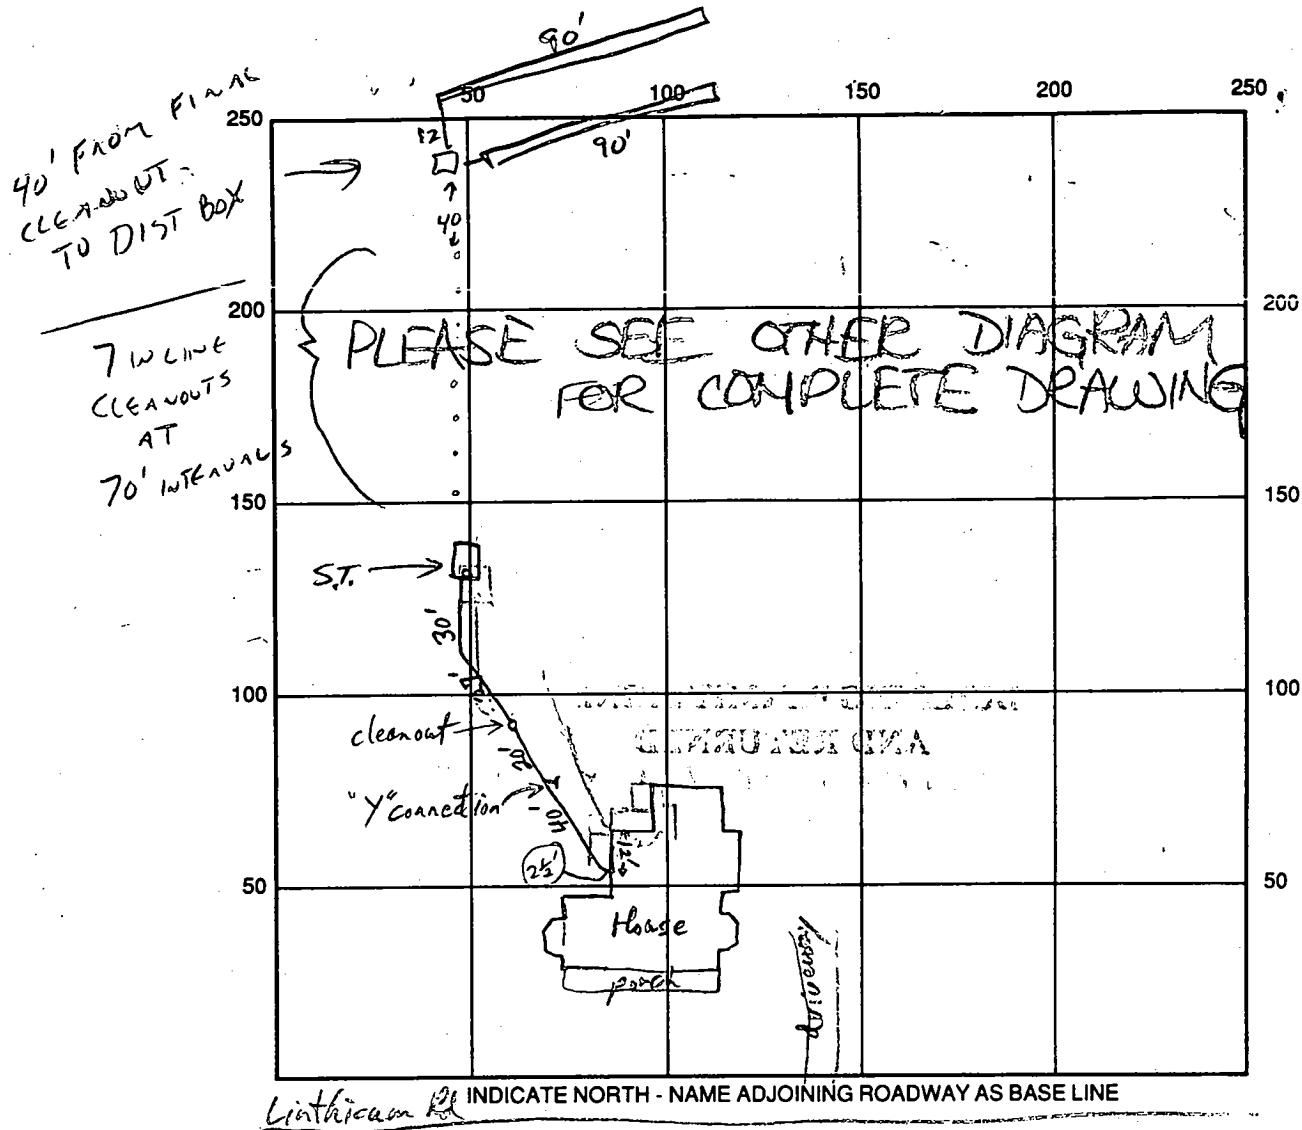 90'
50 100 150 200 250
40' FROM FINAL
CLEANOUT
TO DIST BOX
250
12
90'
40
200 200
7 INLINE
CLEANOUTS
AT
70' INTERVALS
PLEASE SEE OTHER DIAGRAM
FOR COMPLETE DRAWING
150 150
S.T.
30'
100 100
cleanout
20'
"Y" connection
40'
AND RETURNED
12'
2½'
50 50
House
porch
driveway
Linthicum Rd INDICATE NORTH - NAME ADJOINING ROADWAY AS BASE LINE